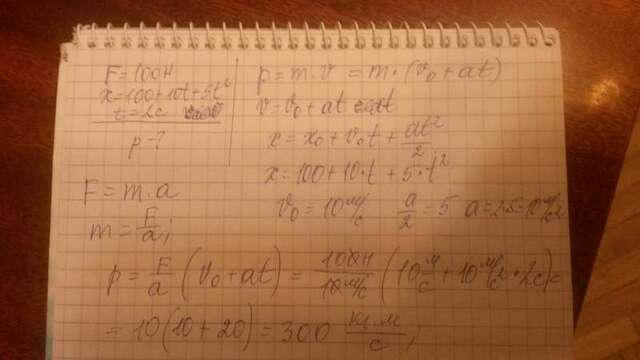 F=100Н
x=100+10t+5t²
t=2с
p-?
p=m·v=m·(v₀+at)
v=v₀+at
x=x₀+v₀t+at²/2
x=100+10·t+5·t²
v₀=10м/с a/2=5 a=2·5=10м/с²
F=m·a
m=F/a;
p=F/a(v₀+at)=100Н/10м/с²(10м/с+10м/с²*2с)=
=10(10+20)=300 кг·м/с